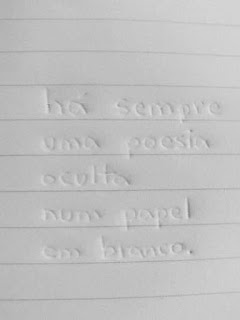 há sempre
uma poesia
oculta
num papel
em branco.